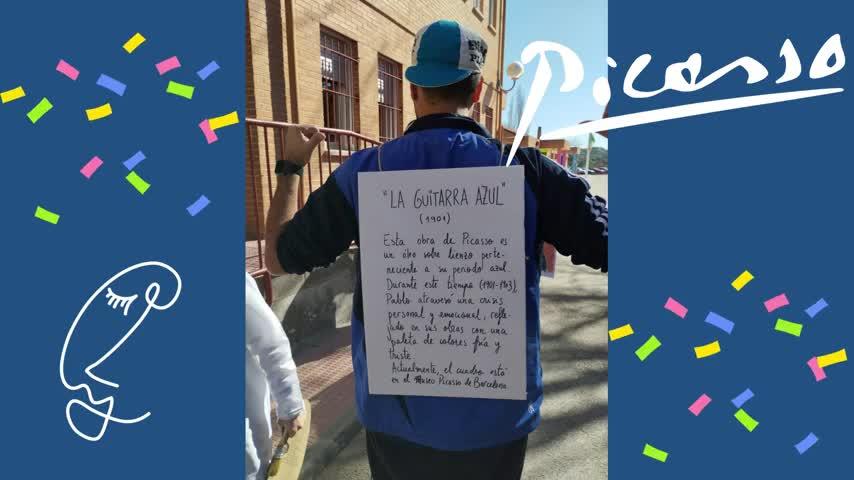 Picasso
"LA GUITARRA AZUL"
(1901)
Esta obra de Picasso es
un óleo sobre lienzo perte-
neciente a su período azul.
Durante este tiempo (1901-1903),
Pablo atravesó una crisis
personal y emocional, refle-
jado en sus obras con una
paleta de colores fría y
triste.
Actualmente, el cuadro está
en el Museo Picasso de Barcelona.